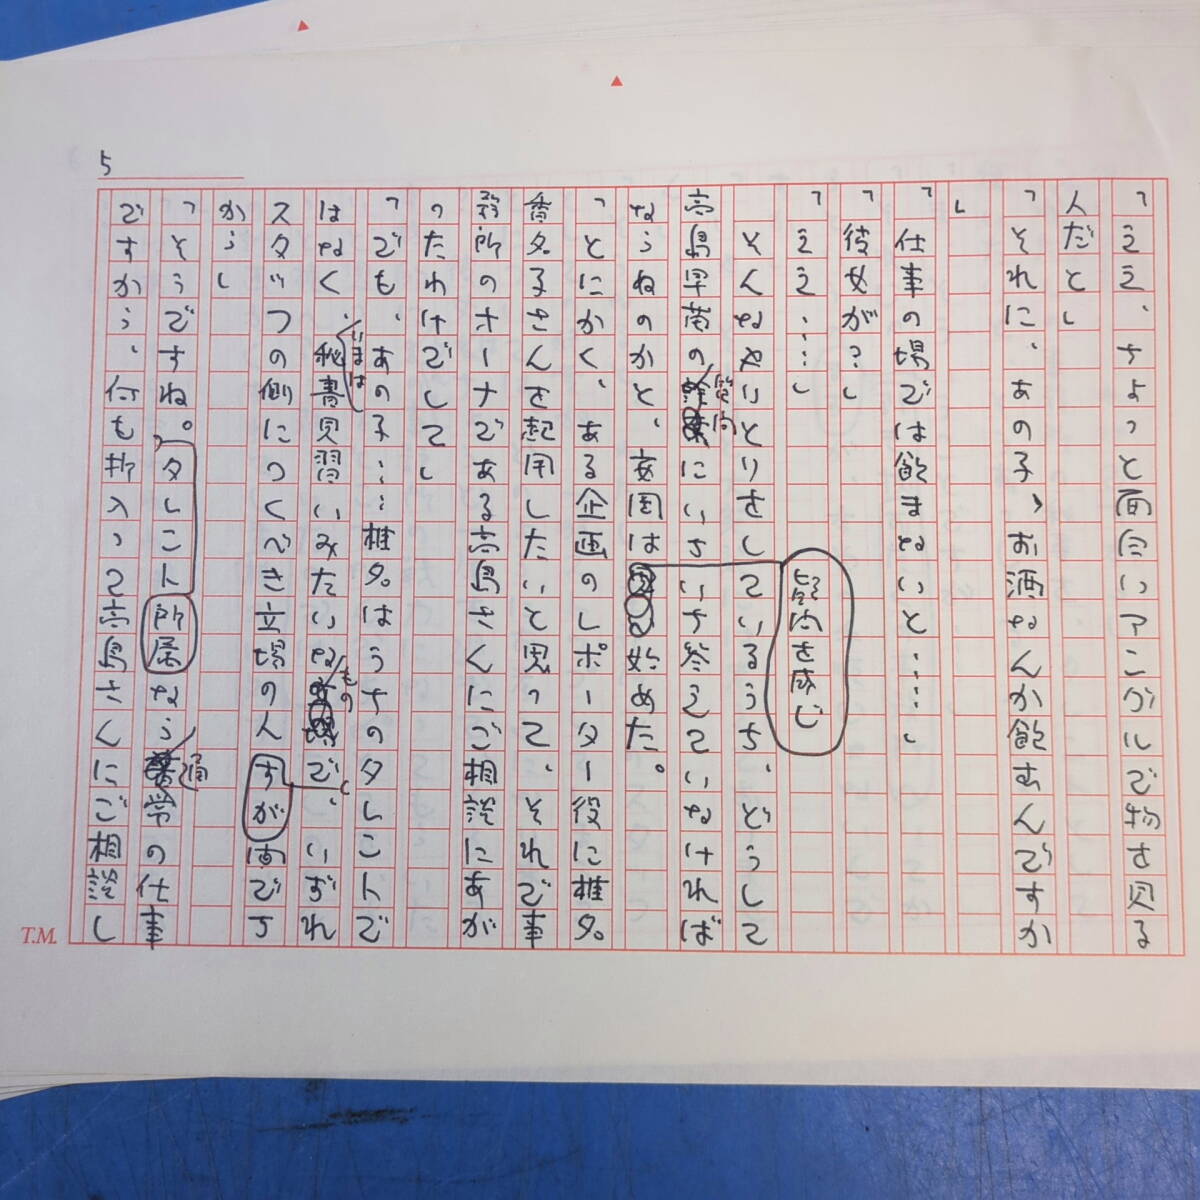 5
「ええ、ちょっと面白いアングルで物を見る
人だと」
「それに、あの子、お酒なんか飲むんですか
」
「仕事の場では飲まないと……」
「彼女が?」
「ええ……」
そんなやりとりをしているうち、どうして
高島早苗の質問にいちいち答えていなければ
ならぬのかと、安岡は疑問を感じ始めた。
「とにかく、ある企画のレポーター役に椎名
香名子さんを起用したいと思って、それで事
務所のオーナである高島さんにご相談にあが
ったわけでして」
「でも、あの子……椎名はうちのタレントで
はなく、いまは秘書見習いみたいなものですが、いずれ
スタッフの側につくべき立場の人間です
から」
「そうですね。所属タレントなら通常の仕事
ですから、何も折入って高島さんにご相談し
T.M.